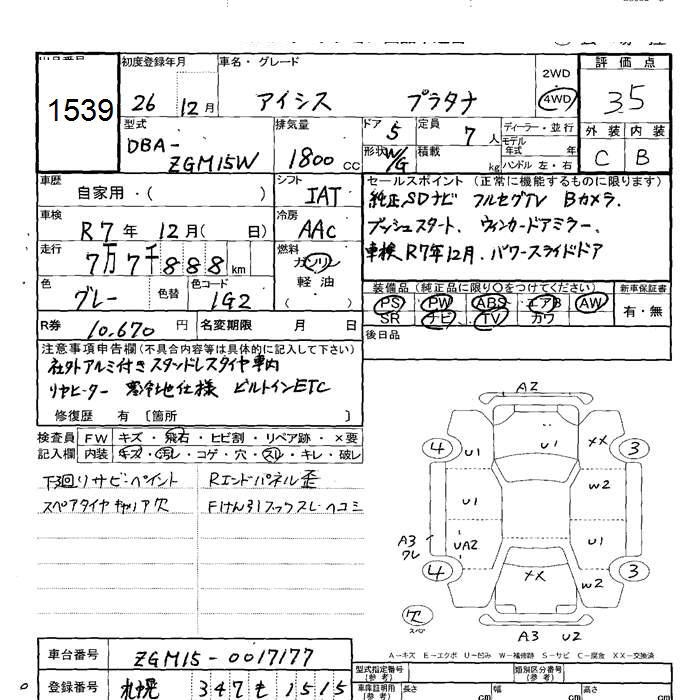 1539
初度登録年月 車名・グレード 2WD 評価点
26 12月 アイシス プラタナ 4WD 3.5
型式 排気量 ドア 5 定員 7人 ディーラー・並行 外装 内装
DBA-ZGM15W 1800cc 形状 W/G 積載 kg モデル年式 年 ハンドル 左・右 C B
車歴 自家用・( ) シフト IAT セールスポイント (正常に機能するものに限ります)
純正SDナビ フルセグTV Bカメラ.
車検 R7年 12月( 日) 冷房 AAC プッシュスタート、ウィンカードアミラー、
走行 7万7千888km 燃料 ガソリン 軽油 ( 車検R7年12月.パワースライドドア
色 グレー 色替 色コード 1G2 装備品 (純正品に限り○をつけてください) 新車保証書
PS PW ABS エアB AW 有・無
SR ナビ TV カワ
R券 10,670円 名変期限 月 日 後日品
注意事項申告欄(不具合内容等は具体的に記入して下さい)
社外アルミ付きスタッドレスタイヤ車内
リヤヒーター 寒冷地仕様 ビルトインETC
修復歴 有 〔箇所 〕
検査員 FW キズ・飛石・ヒビ割・リペア跡・×要
記入欄 内装 キズ・汚レ・コゲ・穴・スレ・キレ・破レ
下回りサビ・ペイント Rエンドパネル歪
スペアタイヤキャリア欠 Fけん引フックスレ・ヘコミ
A2
4 U1 U1 XX 3
U1 W2
A3 ワレ UA2 U1
4 XX W2 3
欠 スペア A3 U2
A－キズ E－エクボ U－凹み W－補修跡 S－サビ C－腐食 XX－交換済
車台番号 ZGM15-0017177
型式指定番号(参考) 類別区分番号(参考)
登録番号 札幌 347 も 1515 車庫証明用(参考) 長さ cm 幅 cm 高さ cm